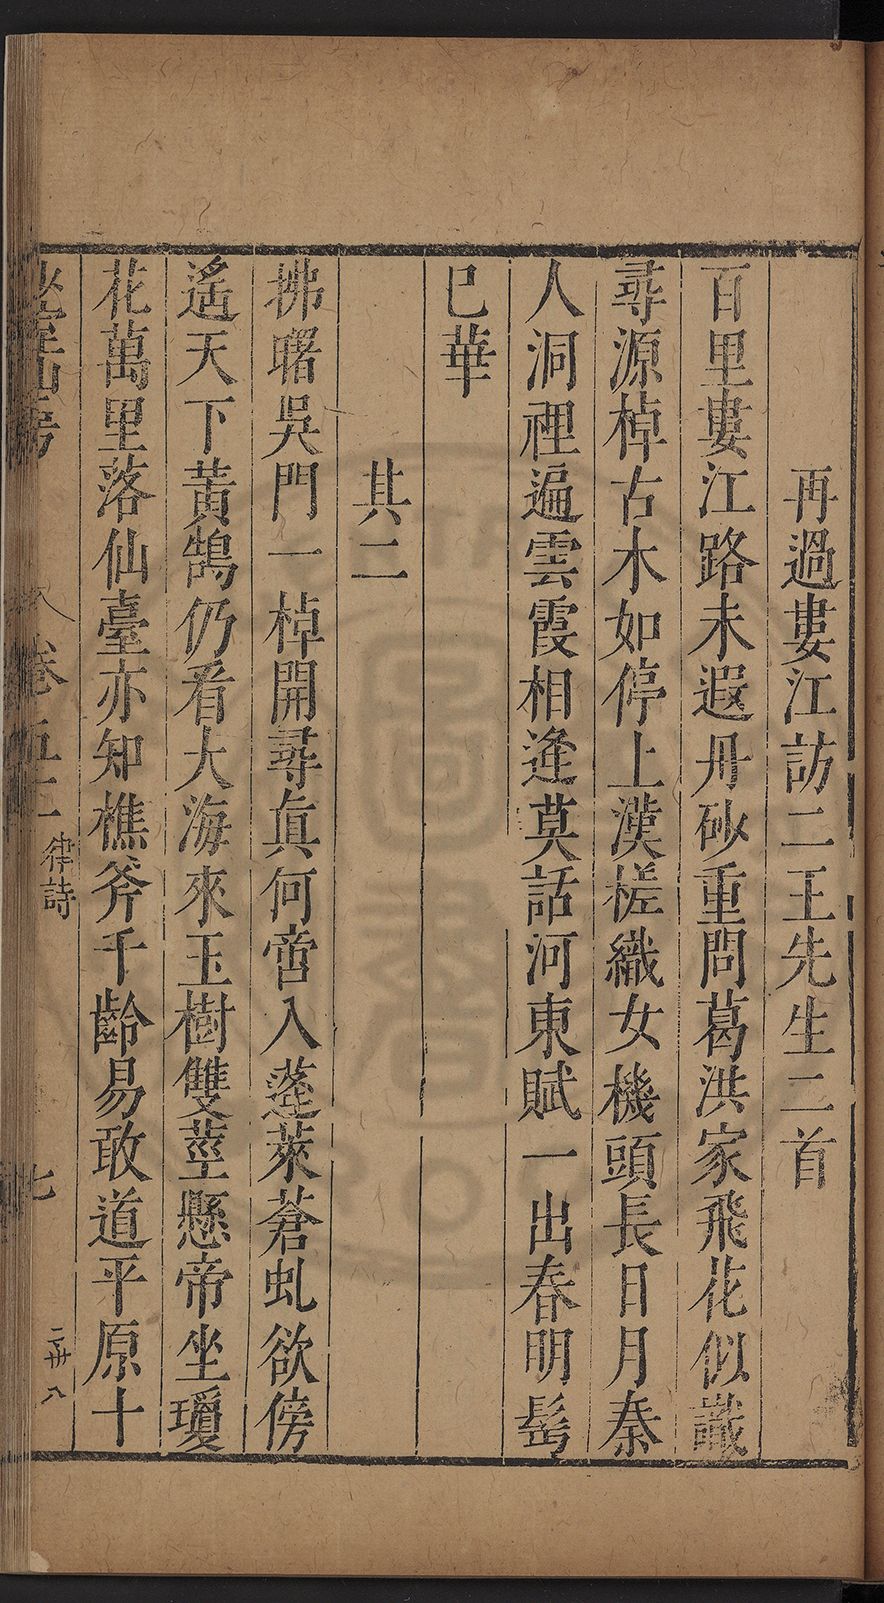 再過婁江訪二王先生二首
百里婁江路未遐丹砂重問葛洪家飛花似識
尋源棹古木如停上漢槎織女機頭長日月秦
人洞裡遍雲霞相逢莫話河東賦一出春明髩
巳華
其二
拂曙吳門一棹開尋眞何啻入蓬萊蒼虬欲傍
遙天下黃鵠仍看大海來玉樹雙莖懸帝坐瓊
花萬里落仙臺亦知樵斧千齡易敢道平原十
卷五二 律詩 七 二卅八